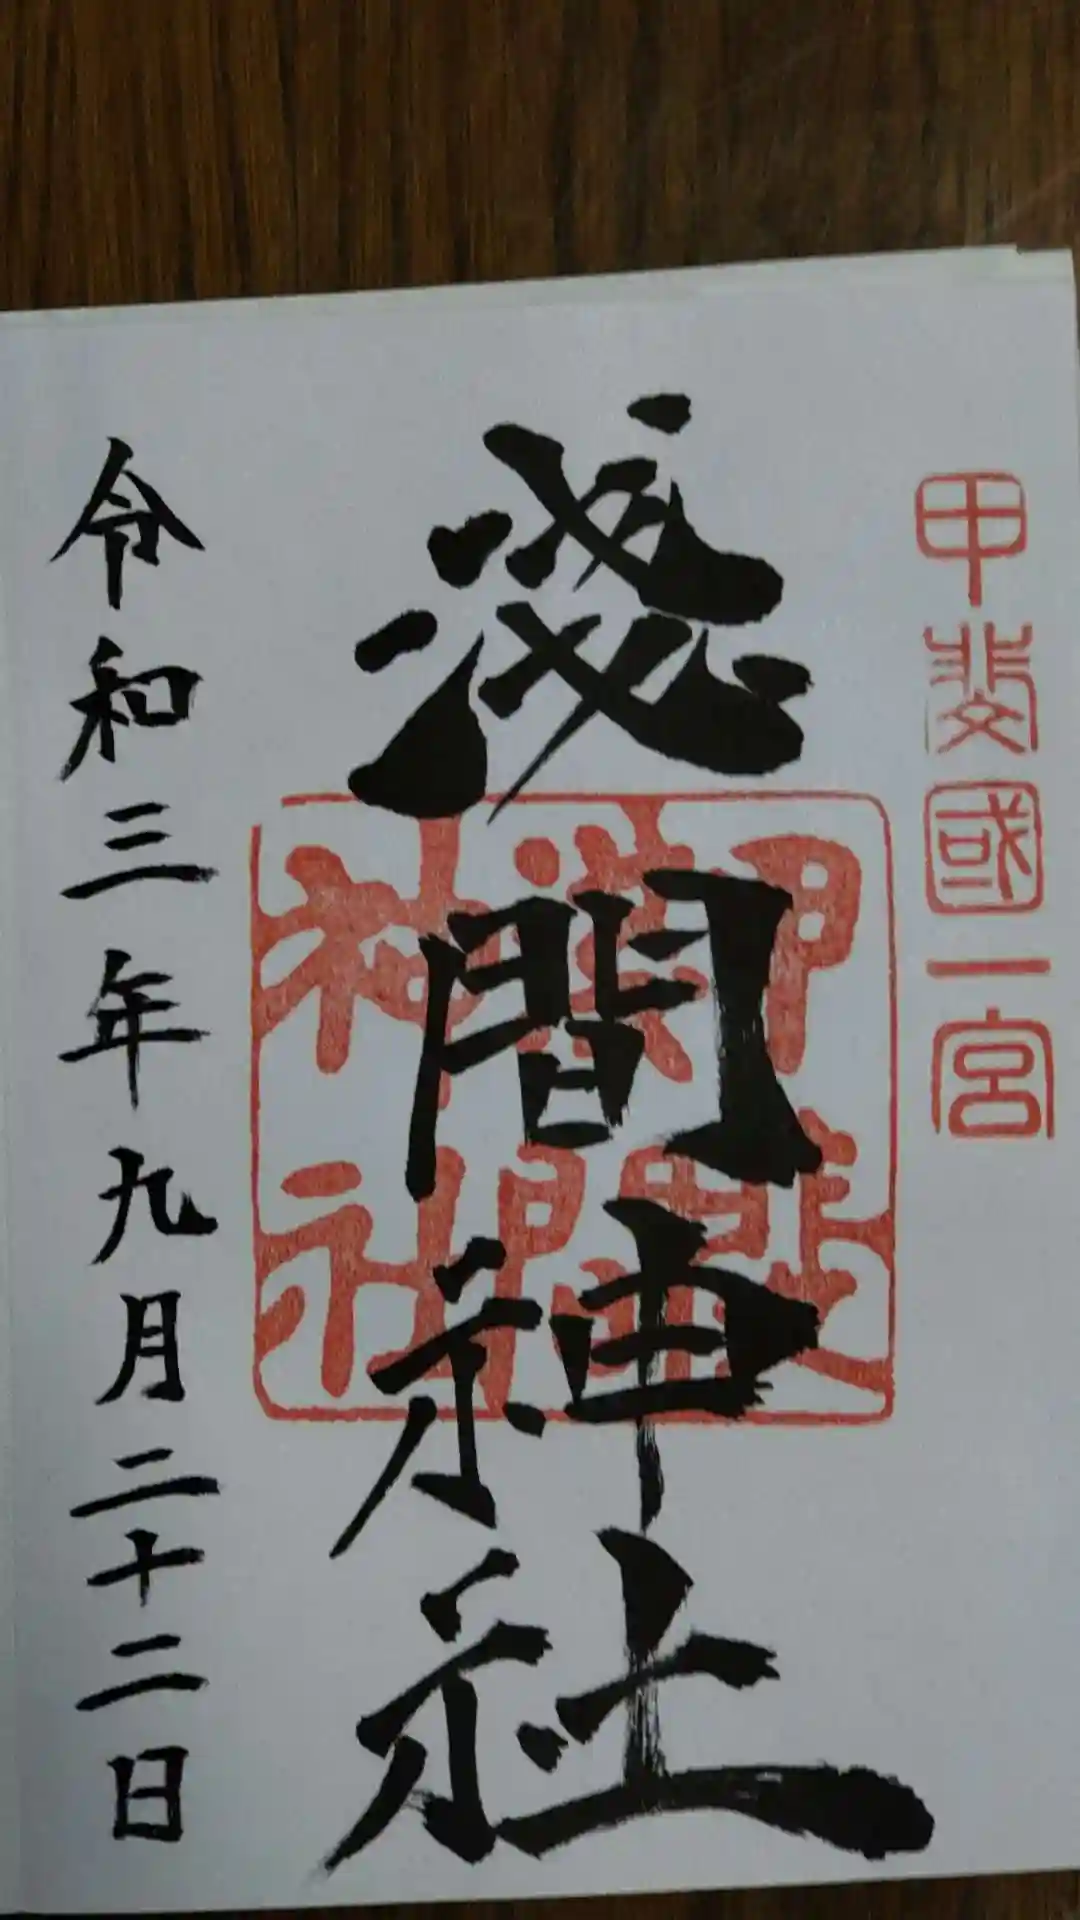 甲斐國一宮
淺間神社
令和三年九月二十二日